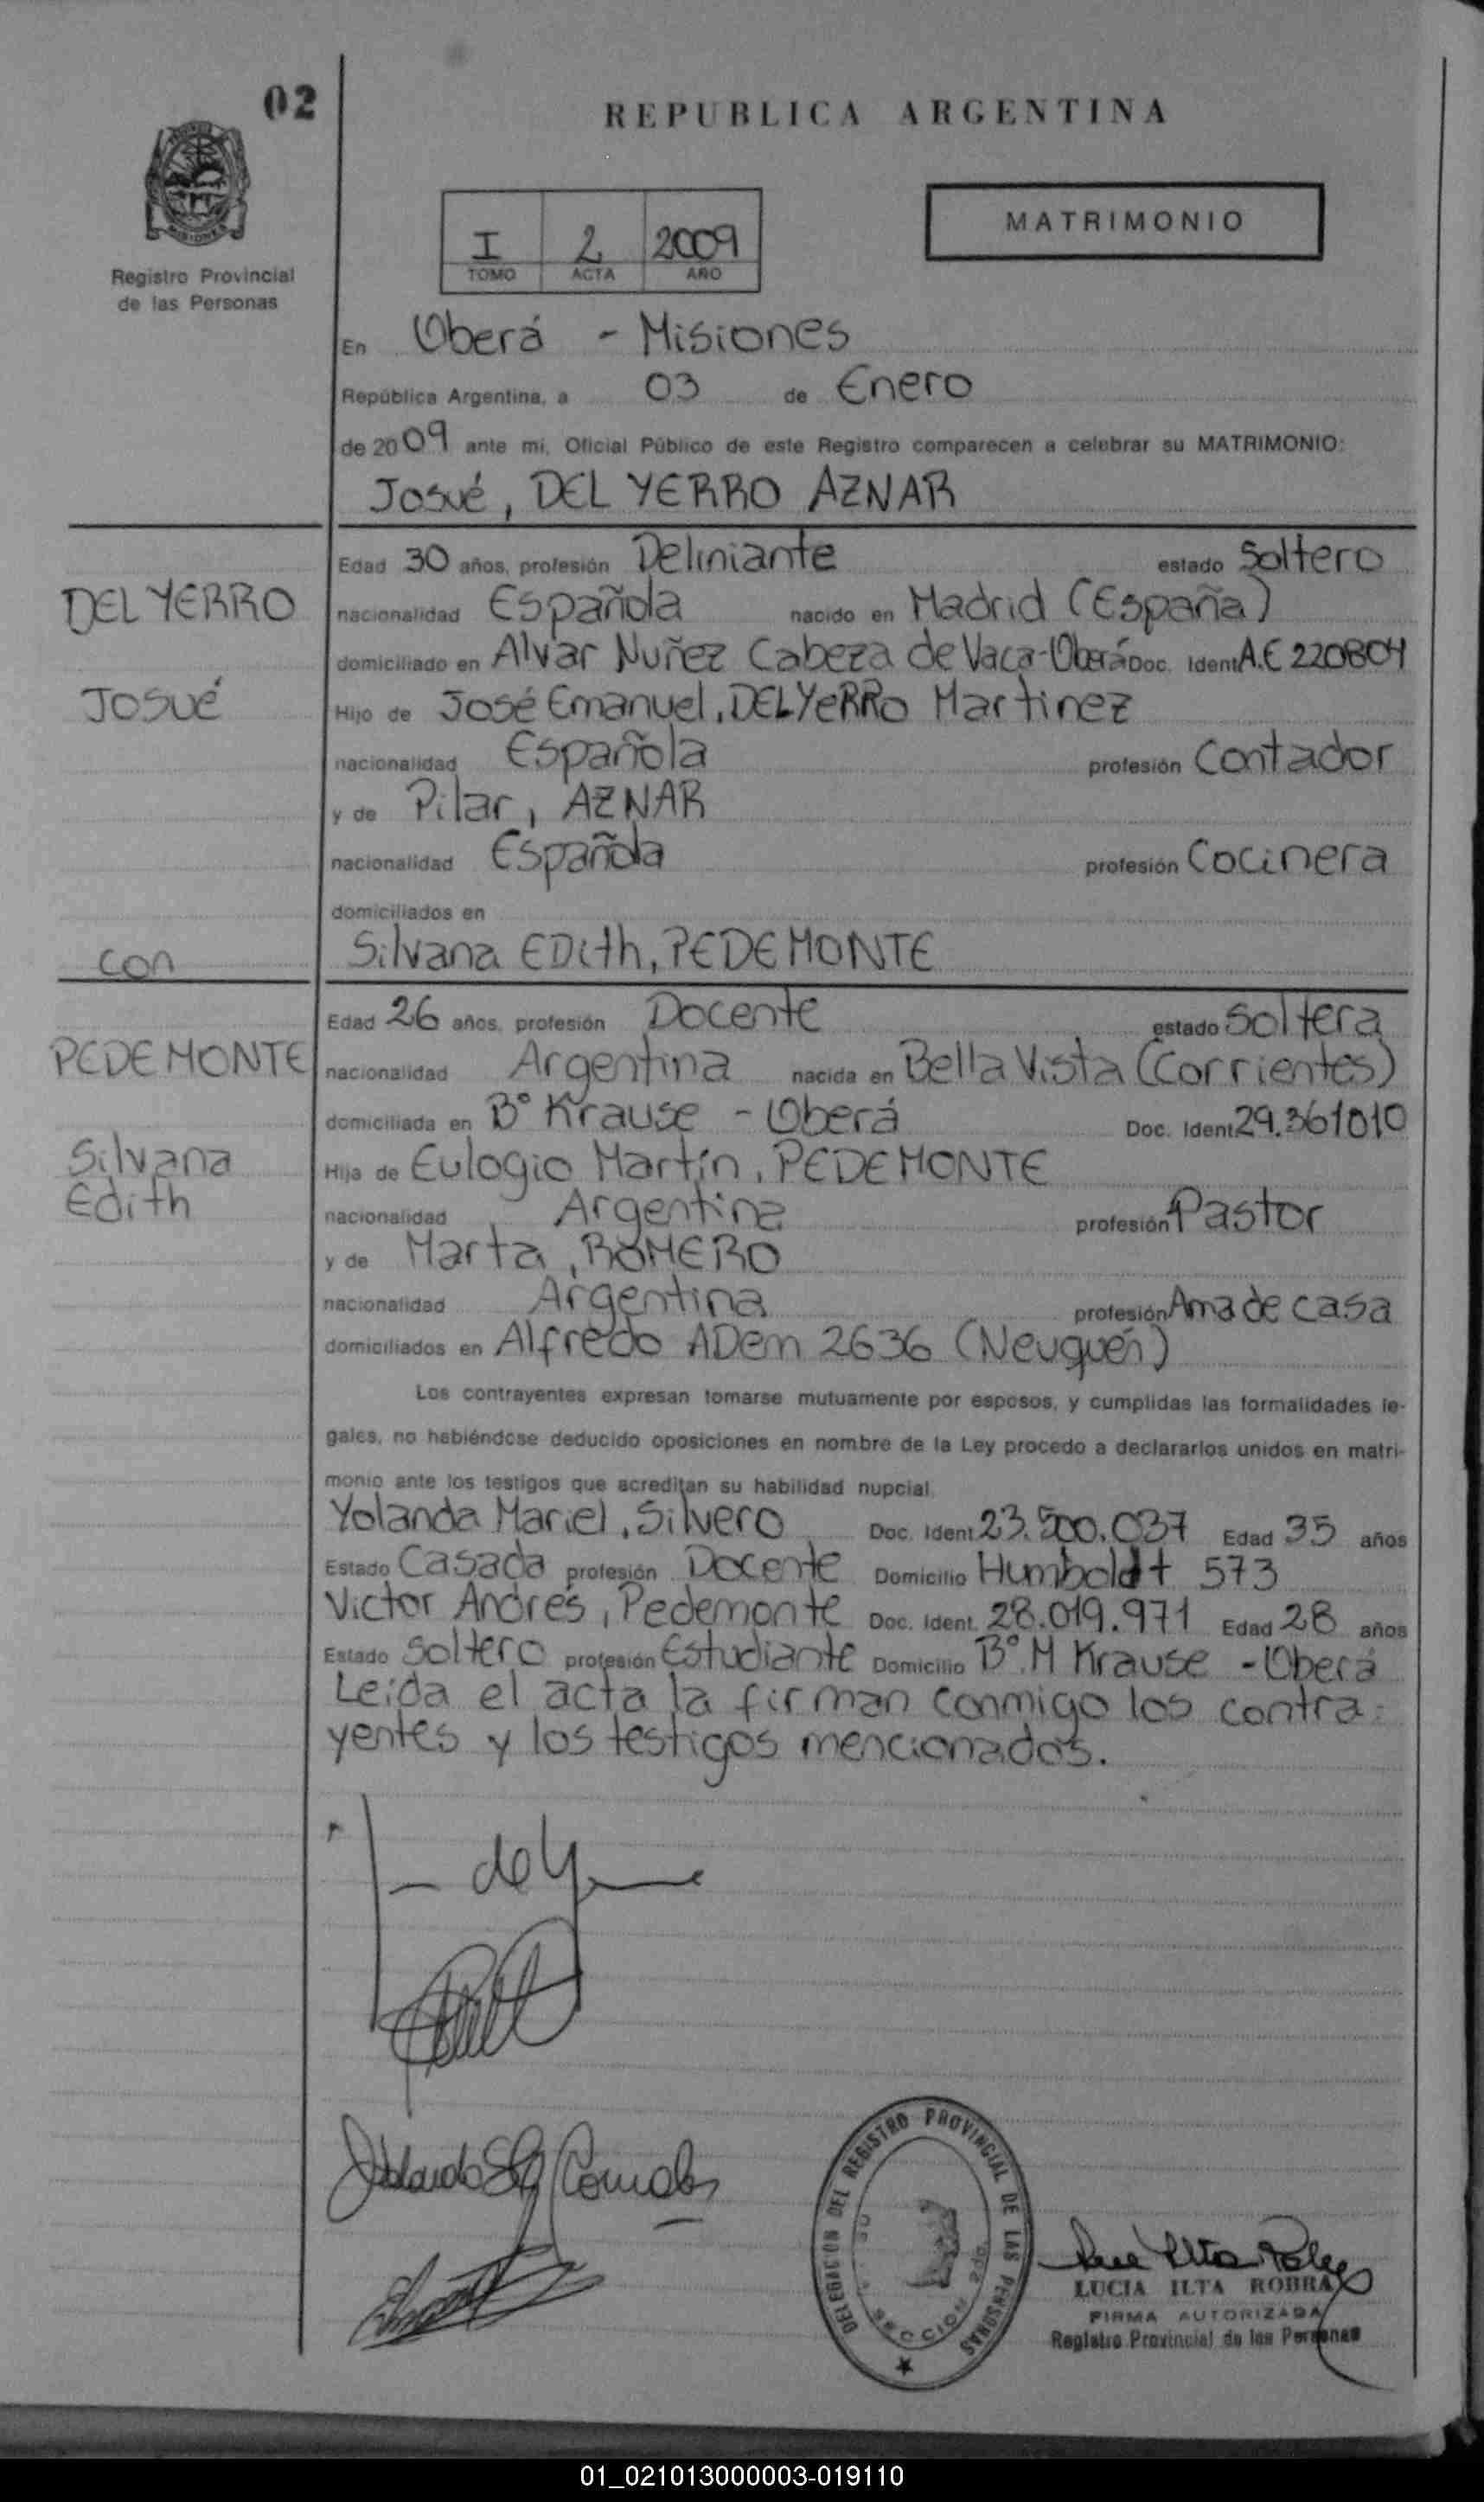 02
REPUBLICA ARGENTINA
MISIONES
Registro Provincial
de las Personas
I 2 2009
TOMO ACTA AÑO
MATRIMONIO
En Oberá - Misiones
República Argentina, a 03 de Enero
de 2009 ante mi, Oficial Público de este Registro comparecen a celebrar su MATRIMONIO:
Josué, DEL YERRO AZNAR
DEL YERRO
JOSUÉ
Edad 30 años, profesión Deliniante estado Soltero
nacionalidad Española nacido en Madrid (España)
domiciliado en Alvar Nuñez Cabeza de Vaca-Oberá Doc. Ident A.E 220804
Hijo de José Emanuel, DEL YERRO Martinez
nacionalidad Española profesión Contador
y de Pilar, AZNAR
nacionalidad Española profesión Cocinera
domiciliados en
con
Silvana EDith, PEDEMONTE
PEDEMONTE
Silvana
Edith
Edad 26 años, profesión Docente estado Soltera
nacionalidad Argentina nacida en Bella Vista (Corrientes)
domiciliada en B° Krause - Oberá Doc. Ident 29.361010
Hija de Eulogio Martín, PEDEMONTE
nacionalidad Argentina profesión Pastor
y de Marta, ROMERO
nacionalidad Argentina profesión Ama de casa
domiciliados en Alfredo ADem 2636 (Neuquén)
Los contrayentes expresan tomarse mutuamente por esposos, y cumplidas las formalidades le-
gales, no habiéndose deducido oposiciones en nombre de la Ley procedo a declararlos unidos en matri-
monio ante los testigos que acreditan su habilidad nupcial.
Yolanda Mariel, Silvero Doc. Ident 23.500.037 Edad 35 años
Estado Casada profesión Docente Domicilio Humboldt 573
Victor Andrés, Pedemonte Doc. Ident. 28.019.971 Edad 28 años
Estado Soltero profesión Estudiante Domicilio B°.M Krause - Oberá
Leída el acta la firman conmigo los contra
yentes y los testigos mencionados.
DELEGACION DEL REGISTRO PROVINCIAL DE LAS PERSONAS
SECCION 2da
LUCIA ILTA ROBRA
FIRMA AUTORIZADA
Registro Provincial de las Personas
01_021013000003-019110